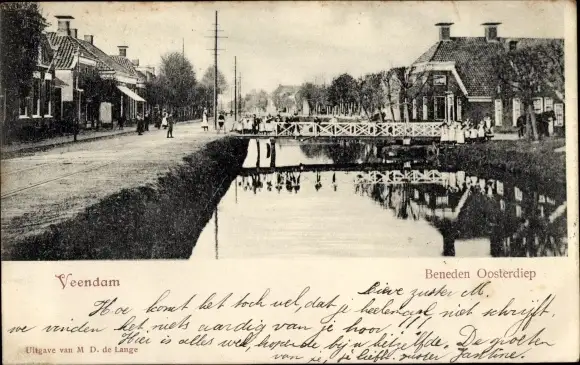 Veendam
Beneden Oosterdiep
Lieve zuster M.
Hoe komt het toch wel, dat je heelemaal niet schrijft.
we vinden het niets aardig van je hoor!
Hier is alles wel, hopende bij u hetzelfde. De groeten
van je, je liefh. zuster Jantine.
Uitgave van M. D. de Lange